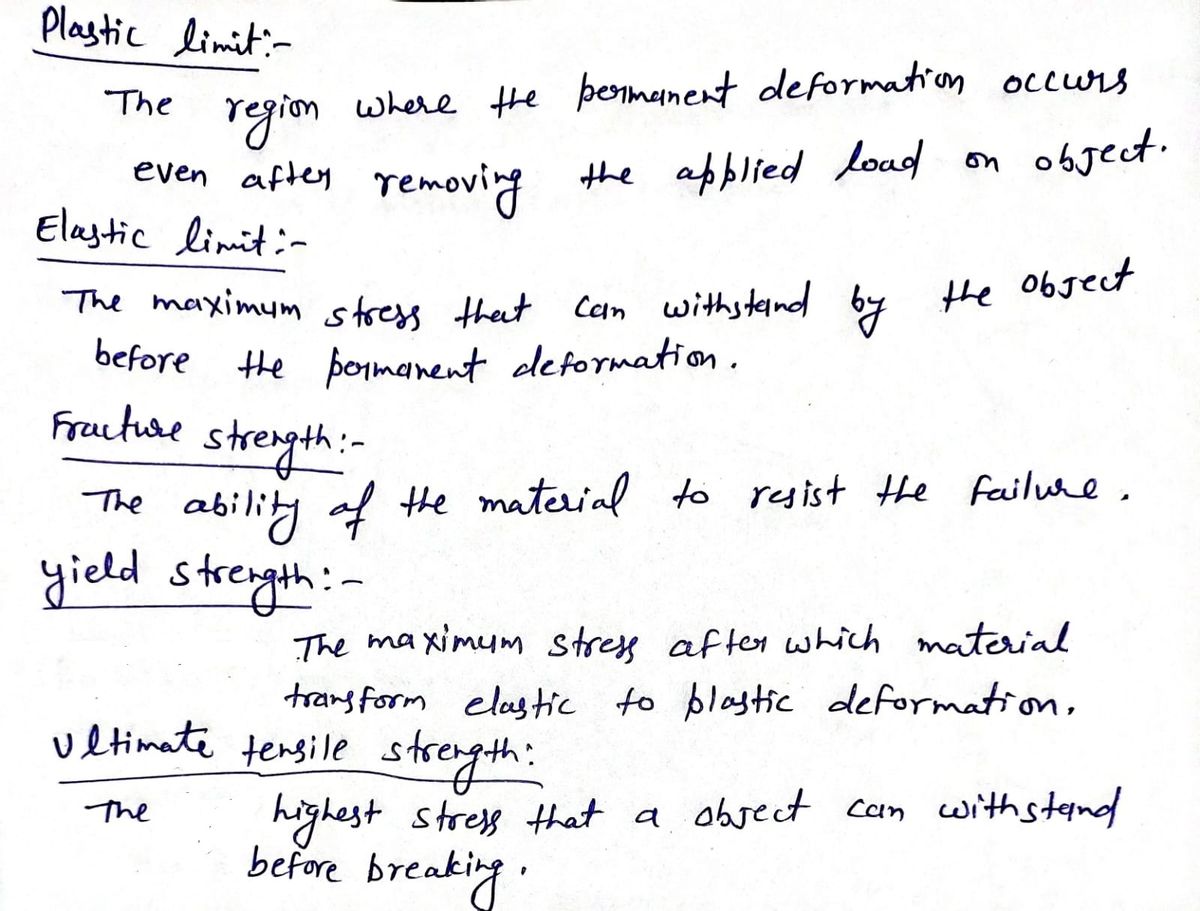 Plastic limit:-
The region where the permanent deformation occurs
even after removing the applied load on object.
Elastic limit:-
The maximum stress that can withstand by the object
before the permanent deformation.
Fracture strength:-
The ability of the material to resist the failure.
yield strength:-
The maximum stress after which material
transform elastic to plastic deformation.
Ultimate tensile strength:
The highest stress that a object can withstand
before breaking.